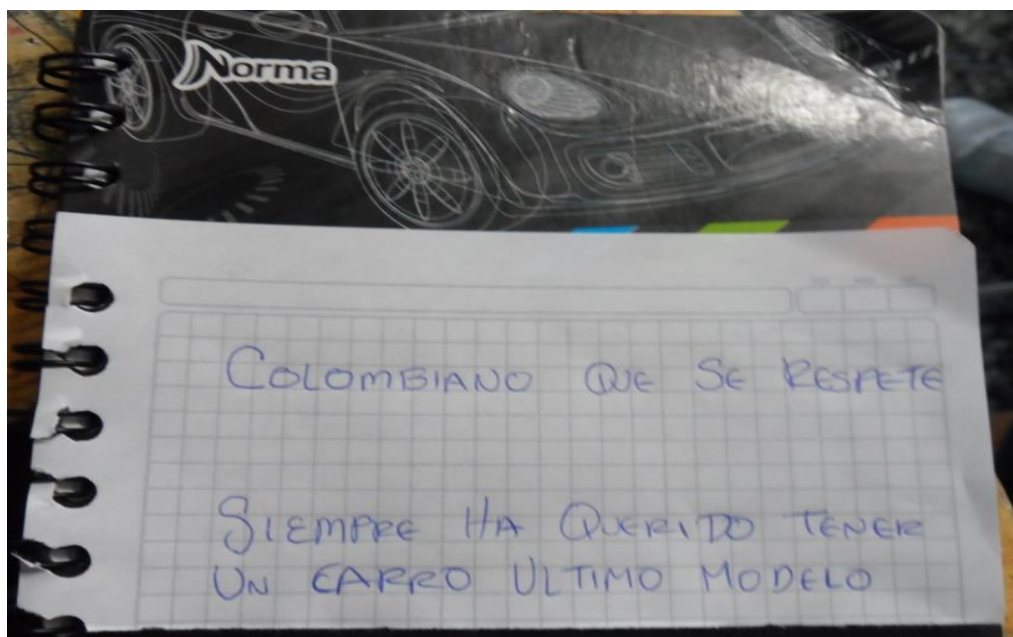 Norma
COLOMBIANO QUE SE RESPETE
SIEMPRE HA QUERIDO TENER
UN CARRO ULTIMO MODELO